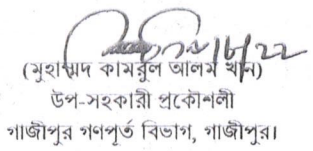 (মুহাম্মদ কামরুল আলম খান)
উপ-সহকারী প্রকৌশলী
গাজীপুর গণপূর্ত বিভাগ, গাজীপুর।